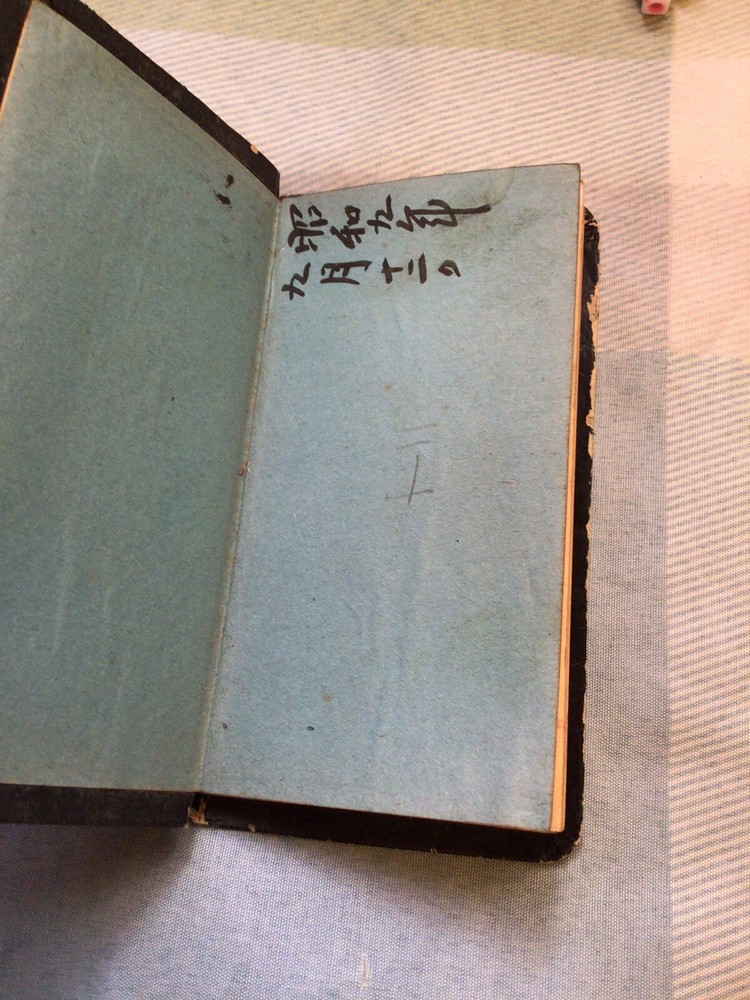 昭和九年
九月十二日
十二